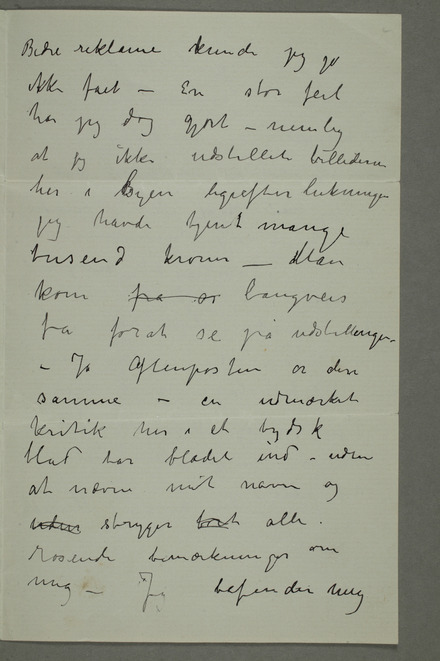 Bedre reklame kunde jeg jo
ikke faet – En stor feil
har jeg dog gjort – nemlig
at jeg ikke udstillet billederne
her i Byen ligeefter lukningen
jeg havde tjent mange
tusend kroner – Man
kom fra so langveis
fra forat se på udstillingen –
– Jo Aftenposten er den
samme – en udmærket
kritik her i et tydsk
blad har bladet ind – uden
at nævne mit navn og
uden stryger bort alle
rosende bemærkninger om
mig – Jeg befinder mig